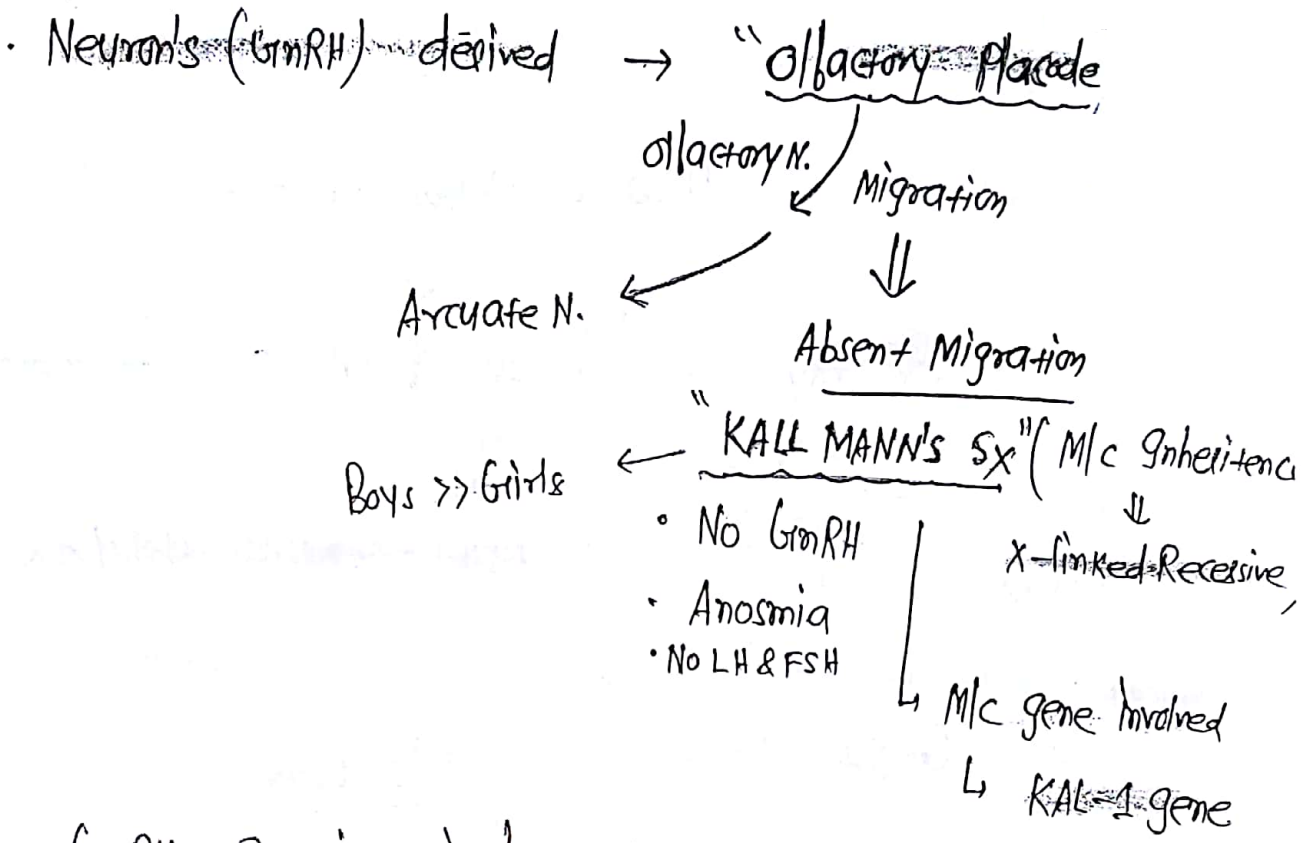 · Neuron's (GnRH) derived → "Olfactory Placode
Olfactory N.
Migration
Arcuate N.
Absent Migration
"KALL MANN'S Sx" ( M/c Inheritenc
Boys >> Girls
X-linked Recessive,
• No GnRH
• Anosmia
• No LH & FSH
M/c gene Involved
KAL-1 gene